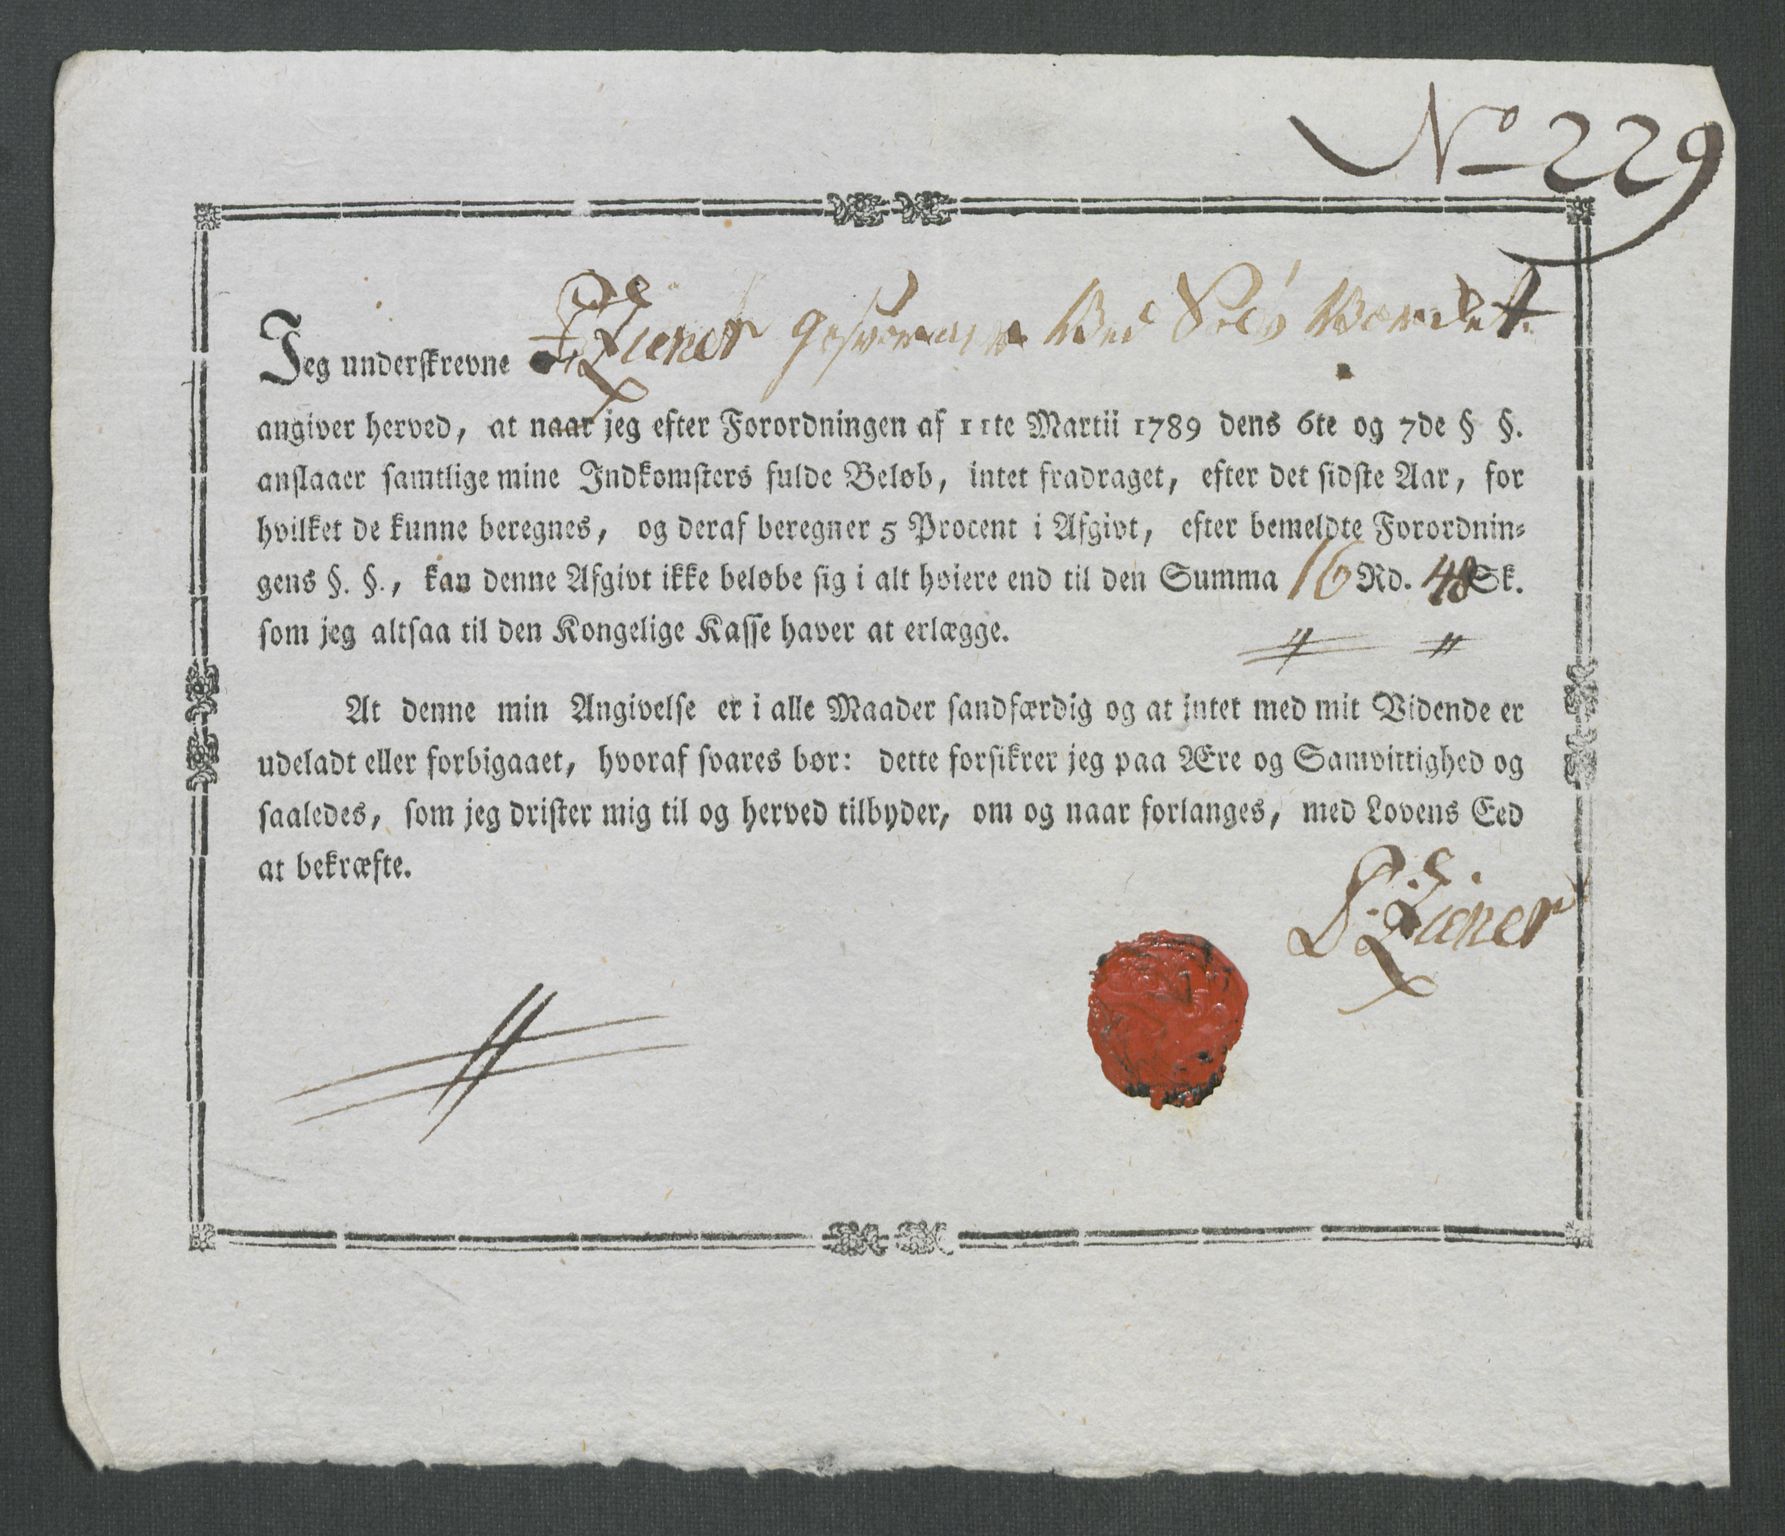 No 229
Jeg underskrevne Ziener Ved Værket
angiver herved, at naar jeg efter Forordningen af 11te Martii 1789 dens 6te og 7de § §.
anslaaer samtlige mine Indkomsters fulde Beløb, intet fradraget, efter det sidste Aar, for
hvilket de kunne beregnes, og deraf beregner 5 Procent i Afgivt, efter bemeldte Forordnin-
gens §. §., kan denne Afgivt ikke beløbe sig i alt høiere end til den Summa 16 Rd. 48 Sk.
som jeg altsaa til den Kongelige Kasse haver at erlægge.
At denne min Angivelse er i alle Maader sandfærdig og at intet med mit Vidende er
udeladt eller forbigaaet, hvoraf svares bør: dette forsikrer jeg paa Ære og Samvittighed og
saaledes, som jeg drister mig til og herved tilbyder, om og naar forlanges, med Lovens Eed
at bekræfte.
Ziener